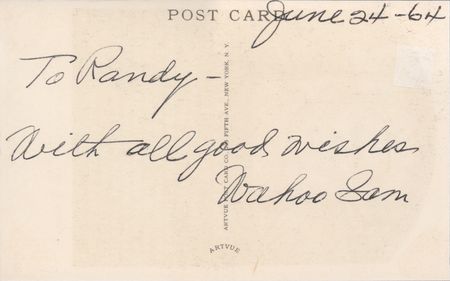 POST CARD
June 24-64
To Randy-
With all good wishes
Wahoo Sam
ARTVUE POST CARD CO. FIFTH AVE., NEW YORK, N. Y.
ARTVUE